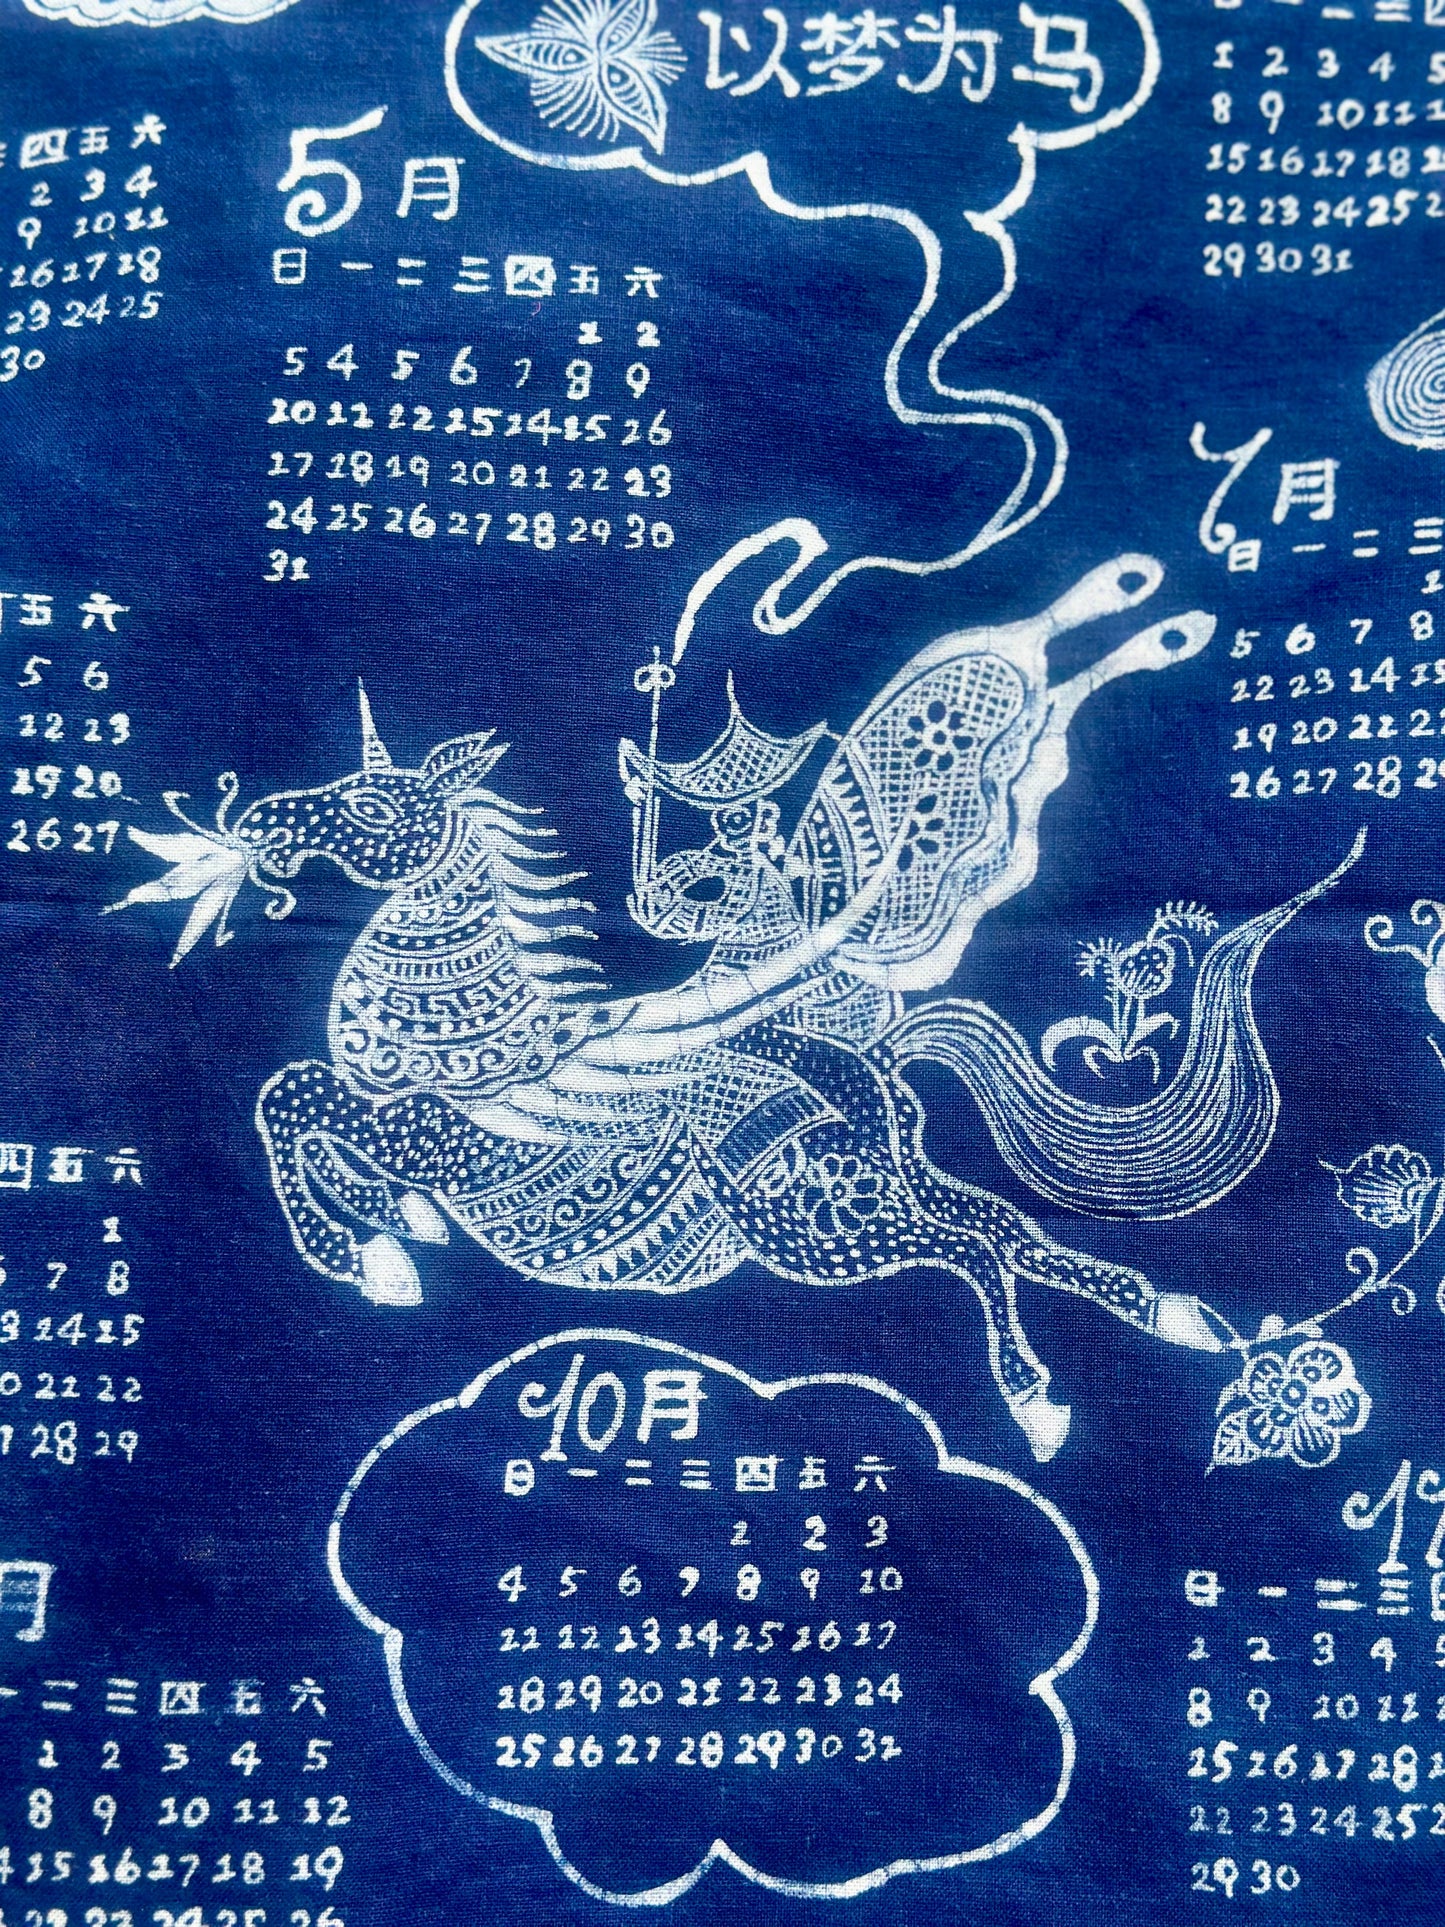 以梦为马
日 一 二 三 四
1 2 3 4 5
8 9 10 11 1
15 16 17 18 1
22 23 24 25 2
29 30 31
四 五 六
2 3 4
9 10 11
16 17 18
23 24 25
30
5月
日 一 二 三 四 五 六
1 2
5 4 5 6 7 8 9
10 11 12 15 14 15 16
17 18 19 20 21 22 23
24 25 26 27 28 29 30
31
7月
日 一 二 三
1
5 6 7 8
22 23 14 15
19 20 21 22
26 27 28 29
五 六
5 6
12 13
19 20
26 27
四 五 六
1
7 8
13 14 15
20 21 22
27 28 29
10月
日 一 二 三 四 五 六
1 2 3
4 5 6 7 8 9 10
11 12 13 14 15 16 17
18 19 20 21 22 23 24
25 26 27 28 29 30 31
月
一 二 三 四 五 六
1 2 3 4 5
8 9 10 11 12
14 15 16 17 18 19
22 23 24 25 26
11
日 一 二 三
1 2 3 4 5
8 9 10 11
15 16 17 18 1
22 23 24 25 2
29 30